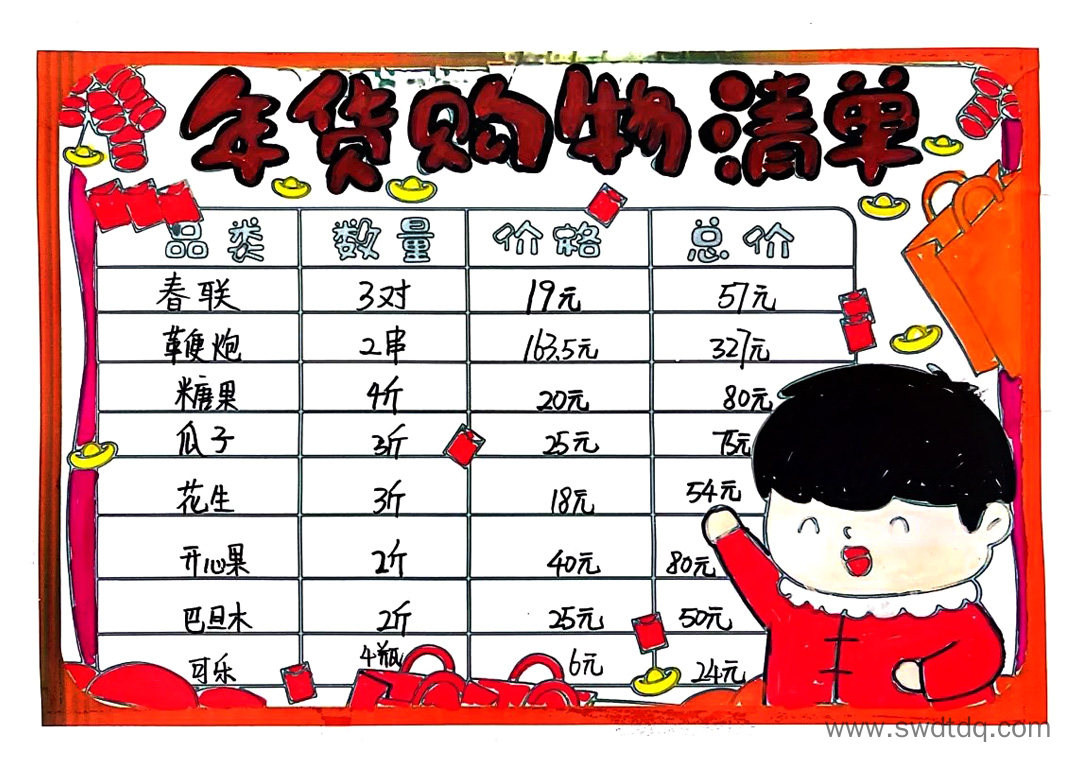 年货购物清单
品类 数量 价格 总价
春联 3对 19元 57元
鞭炮 2串 163.5元 327元
糖果 4斤 20元 80元
瓜子 3斤 25元 75元
花生 3斤 18元 54元
开心果 2斤 40元 80元
巴旦木 2斤 25元 50元
可乐 4瓶 6元 24元
www.swdtdq.com